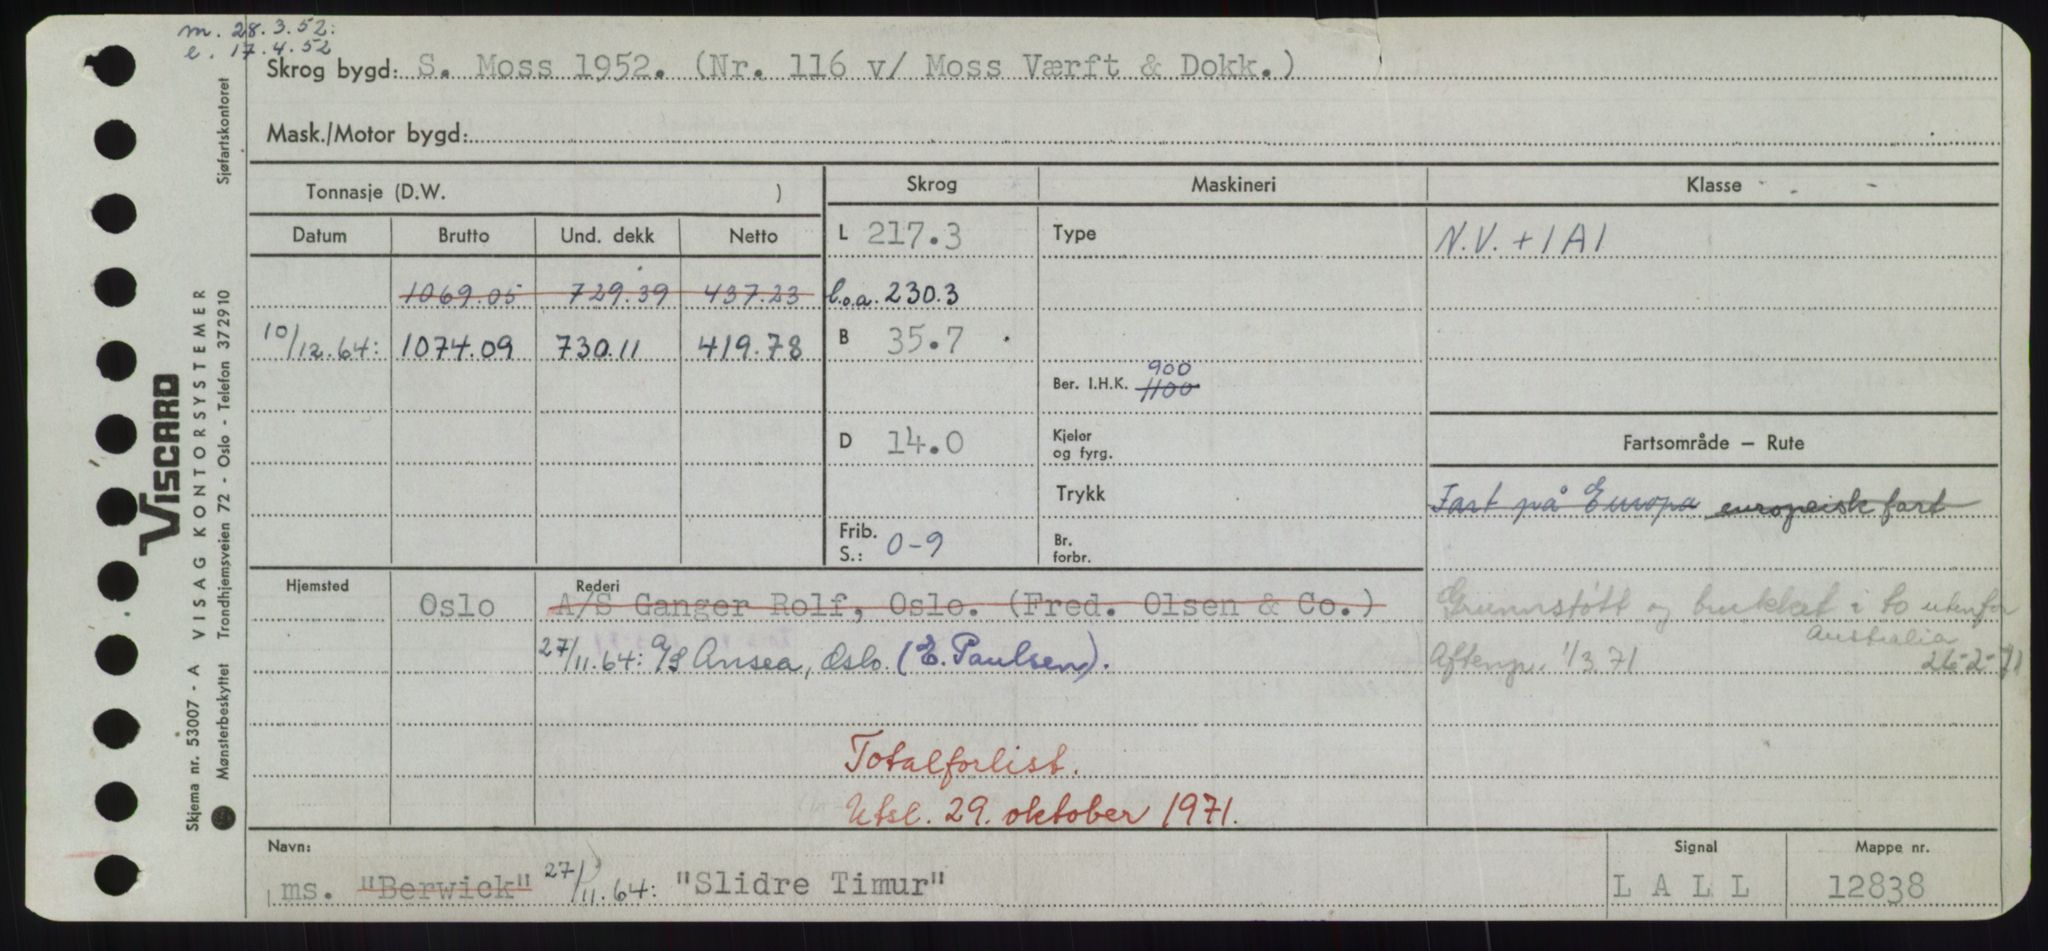 m. 28.3.52:
e. 17.4.52
Skrog bygd: S. Moss 1952. (Nr. 116 v/ Moss Værft & Dokk.)
Mask./Motor bygd:
Tonnasje (D.W. )
Skrog
Maskineri
Klasse
Datum
Brutto
Und. dekk
Netto
L 217.3
Type
N.V. +1A1
1069.05 729.39 437.23
l.o.a. 230.3
10/12.64: 1074.09 730.11 419.78
B 35.7
Ber. I.H.K. 1100
900
D 14.0
Kjeler
og fyrg.
Fartsområde – Rute
Trykk
Fart på Europa europeisk fart
Frib.
S.: 0-9
Br.
forbr.
Hjemsted
Oslo
Rederi
A/S Ganger Rolf, Oslo. (Fred. Olsen & Co.)
27/11.64: A/S Ansea, Oslo. (E. Paulsen).
Grunnstøtt og brukket i to utenfor
Australia
26-2-71
Aftenp. 1/3.71
Totalforlist.
Utsl. 29. oktober 1971.
Navn:
ms. "Berwick" 27/11.64: "Slidre Timur"
Signal
LALL
Mappe nr.
12838
VISCARD
VISAG KONTORSYSTEMER
Skjema nr. 53007 - A
Mønsterbeskyttet Trondhjemsveien 72 - Oslo - Telefon 372910
Sjøfartskontoret